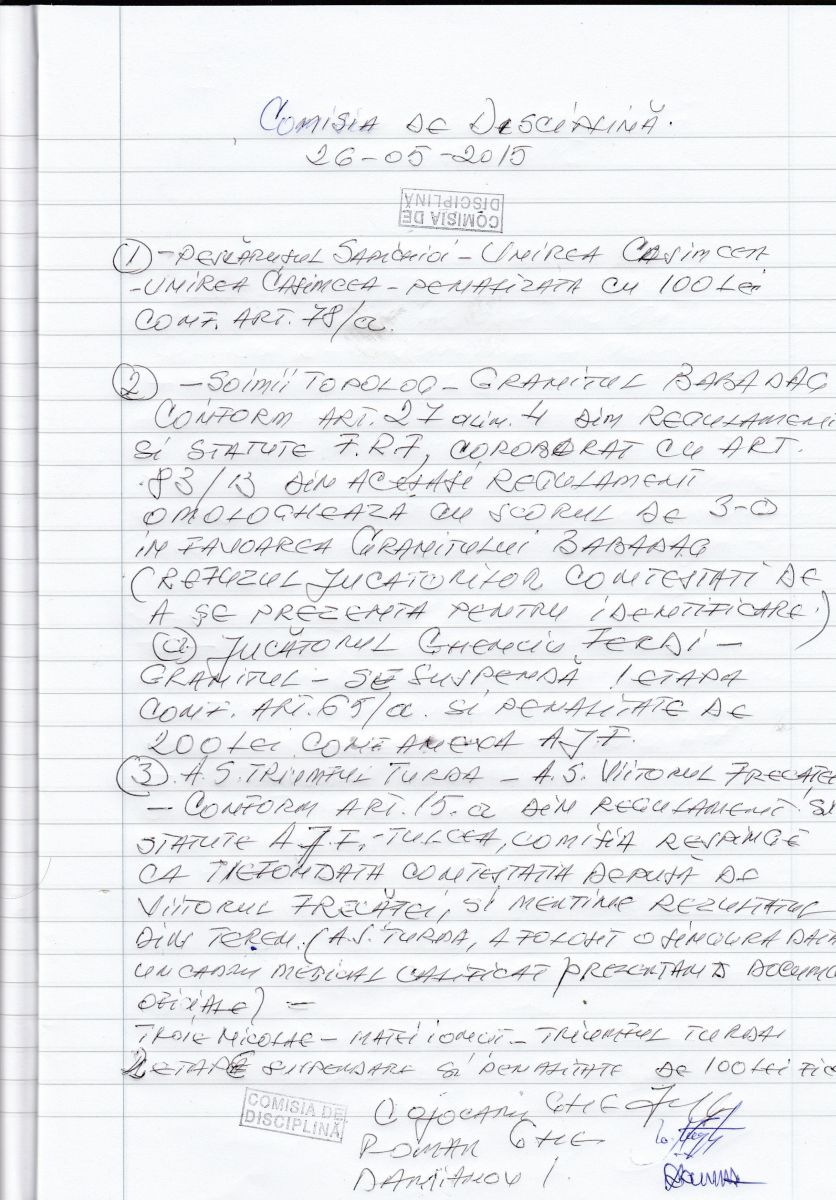 COMISIA DE DISCIPLINĂ.
26-05-2015
COMISIA DE
DISCIPLINĂ
1 - PESCĂRUSUL SARICHIOI - UNIREA CASIMCEA
- UNIREA CASIMCEA - PENALIZATA CU 100 LEI
CONF. ART. 78/a.
2 - SOIMII TOPOLOG - GRANITUL BABADAG
CONFORM ART. 27 alin. 4 DIN REGULAMENT
SI STATUTE F.R.F, COROBORAT CU ART.
83/13 DIN ACELASI REGULAMENT
OMOLOGHEAZĂ CU SCORUL DE 3-0
IN FAVOAREA GRANITULUI BABADAG
(REFUZUL JUCATORILOR CONTESTATI DE
A SE PREZENTA PENTRU IDENTIFICARE.)
a. JUCĂTORUL GHENCIU FERDI -
GRANITUL - SE SUSPENDĂ 1 ETAPA
CONF. ART. 65/a. SI PENALITATE DE
200 LEI CONF ANEXA A.J.F.
3 A.S. TRIUMFUL TURDA - A.S. VIITORUL FRECATEI
- CONFORM ART. 15.a DIN REGULAMENT SI
STATUTE A.J.F. - TULCEA, COMISIA RESPINGE
CA NEFONDATA CONTESTATIA DEPUSĂ DE
VIITORUL FRECĂTEI, SI MENTINE REZULTATUL
DIN TEREN. (A.S. TURDA, A FOLOSIT O SINGURA DATA
UN CADRU MEDICAL CALIFICAT PREZENTAND DOCUM
OFICIALE) -
TROIE NICOLAE - MATEI IONUT - TRIUMFUL TURDA
2 ETAPE SUSPENDARE SI PENALITATE DE 100 LEI FIE
COMISIA DE
DISCIPLINĂ
COJOCARU GHE
ROMAN GHE
DAMIANOV I.